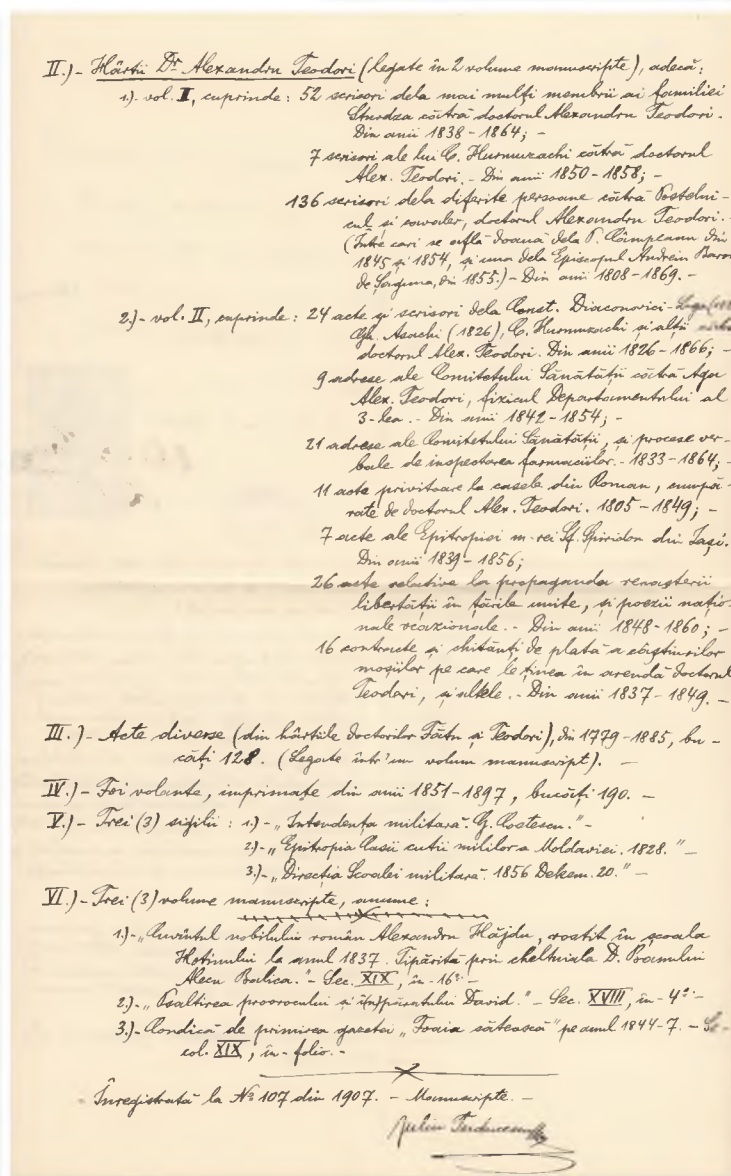 II.)- Hârtii Dr Alexandru Teodori (legate în 2 volume manuscripte), adecă:
1.)- vol. I, cuprinde: 52 scrisori dela mai mulți membrii ai familiei
Sturdza cătră doctorul Alexandru Teodori.
Din anii 1838-1864; -
7 scrisori ale lui C. Hurmuzachi cătră doctorul
Alex. Teodori. - Din anii 1850-1858; -
136 scrisori dela diferite persoane cătră Postelni-
cul, și doctorul Alexandru Teodori. -
(Între cari se află două dela P. Câmpeanu din
1845 și 1854, și una dela Episcopul Andreiu Baron
de Șaguna, din 1855.) - Din anii 1808-1869. -
2.)- vol. II, cuprinde: 24 acte și scrisori dela Const. Diaconovici-Loga
Gh. Asachi (1826), C. Hurmuzachi și alții
doctorul Alex. Teodori. Din anii 1826-1866; -
9 adrese ale Comitetului Sănătății cătră Aga
Alex. Teodori, fizicul Departamentului al
3-lea. - Din anii 1842-1854; -
21 adrese ale Comitetului Sănătății, și procese ver-
bale de inspectarea farmaciilor. - 1833-1864; -
11 acte privitoare la casele din Roman, cumpă-
rate de doctorul Alex. Teodori. 1805-1849; -
7 acte ale Epitropiei m-rei Sf. Spiridon din Iași.
Din anii 1839-1856;
26 acte relative la propaganda renașterii
libertății în țările unite, și poezii națio-
nale ocazionale. - Din anii 1848-1860; -
16 contracte și chitanți de plată a câștiurilor
moșiilor pe care le ținea în arendă doctorul
Teodori, și altele. - Din anii 1837-1849. -
III.)- Acte diverse (din hârtiile doctorilor Fătu și Teodori), din 1779-1885, bu-
căți 128. (Legate într'un volum manuscript). -
IV.)- Foi volante, imprimate din anii 1851-1897, bucăți 190. -
V.)- Trei (3) sigilii: 1.)- „Intendența militară. G. Costescu." -
2.)- „Epitropia Casii cutii mililor a Moldaviei. 1828." -
3.)- „Direcția Scoalei militară. 1856 Dekem. 20." -
VI.)- Trei (3) volume manuscripte, anume:
1.)- „Cuvântul nobilului român Alexandru Hâjdu, rostit în școala
Hotinului la anul 1837. Tipărită prin cheltuiala D. Poamului
Alecu Balica." - Sec. XIX, în-16º. -
2.)- „Psaltirea proorocului și împăratului David." - Sec. XVIII, în-4º. -
3.)- Condică de primirea gazetei „Foaia sătească" pe anul 1844-7. - Se-
col. XIX, în-folio. -
Înregistrată la Nº 107 din 1907. - Manuscripte. -